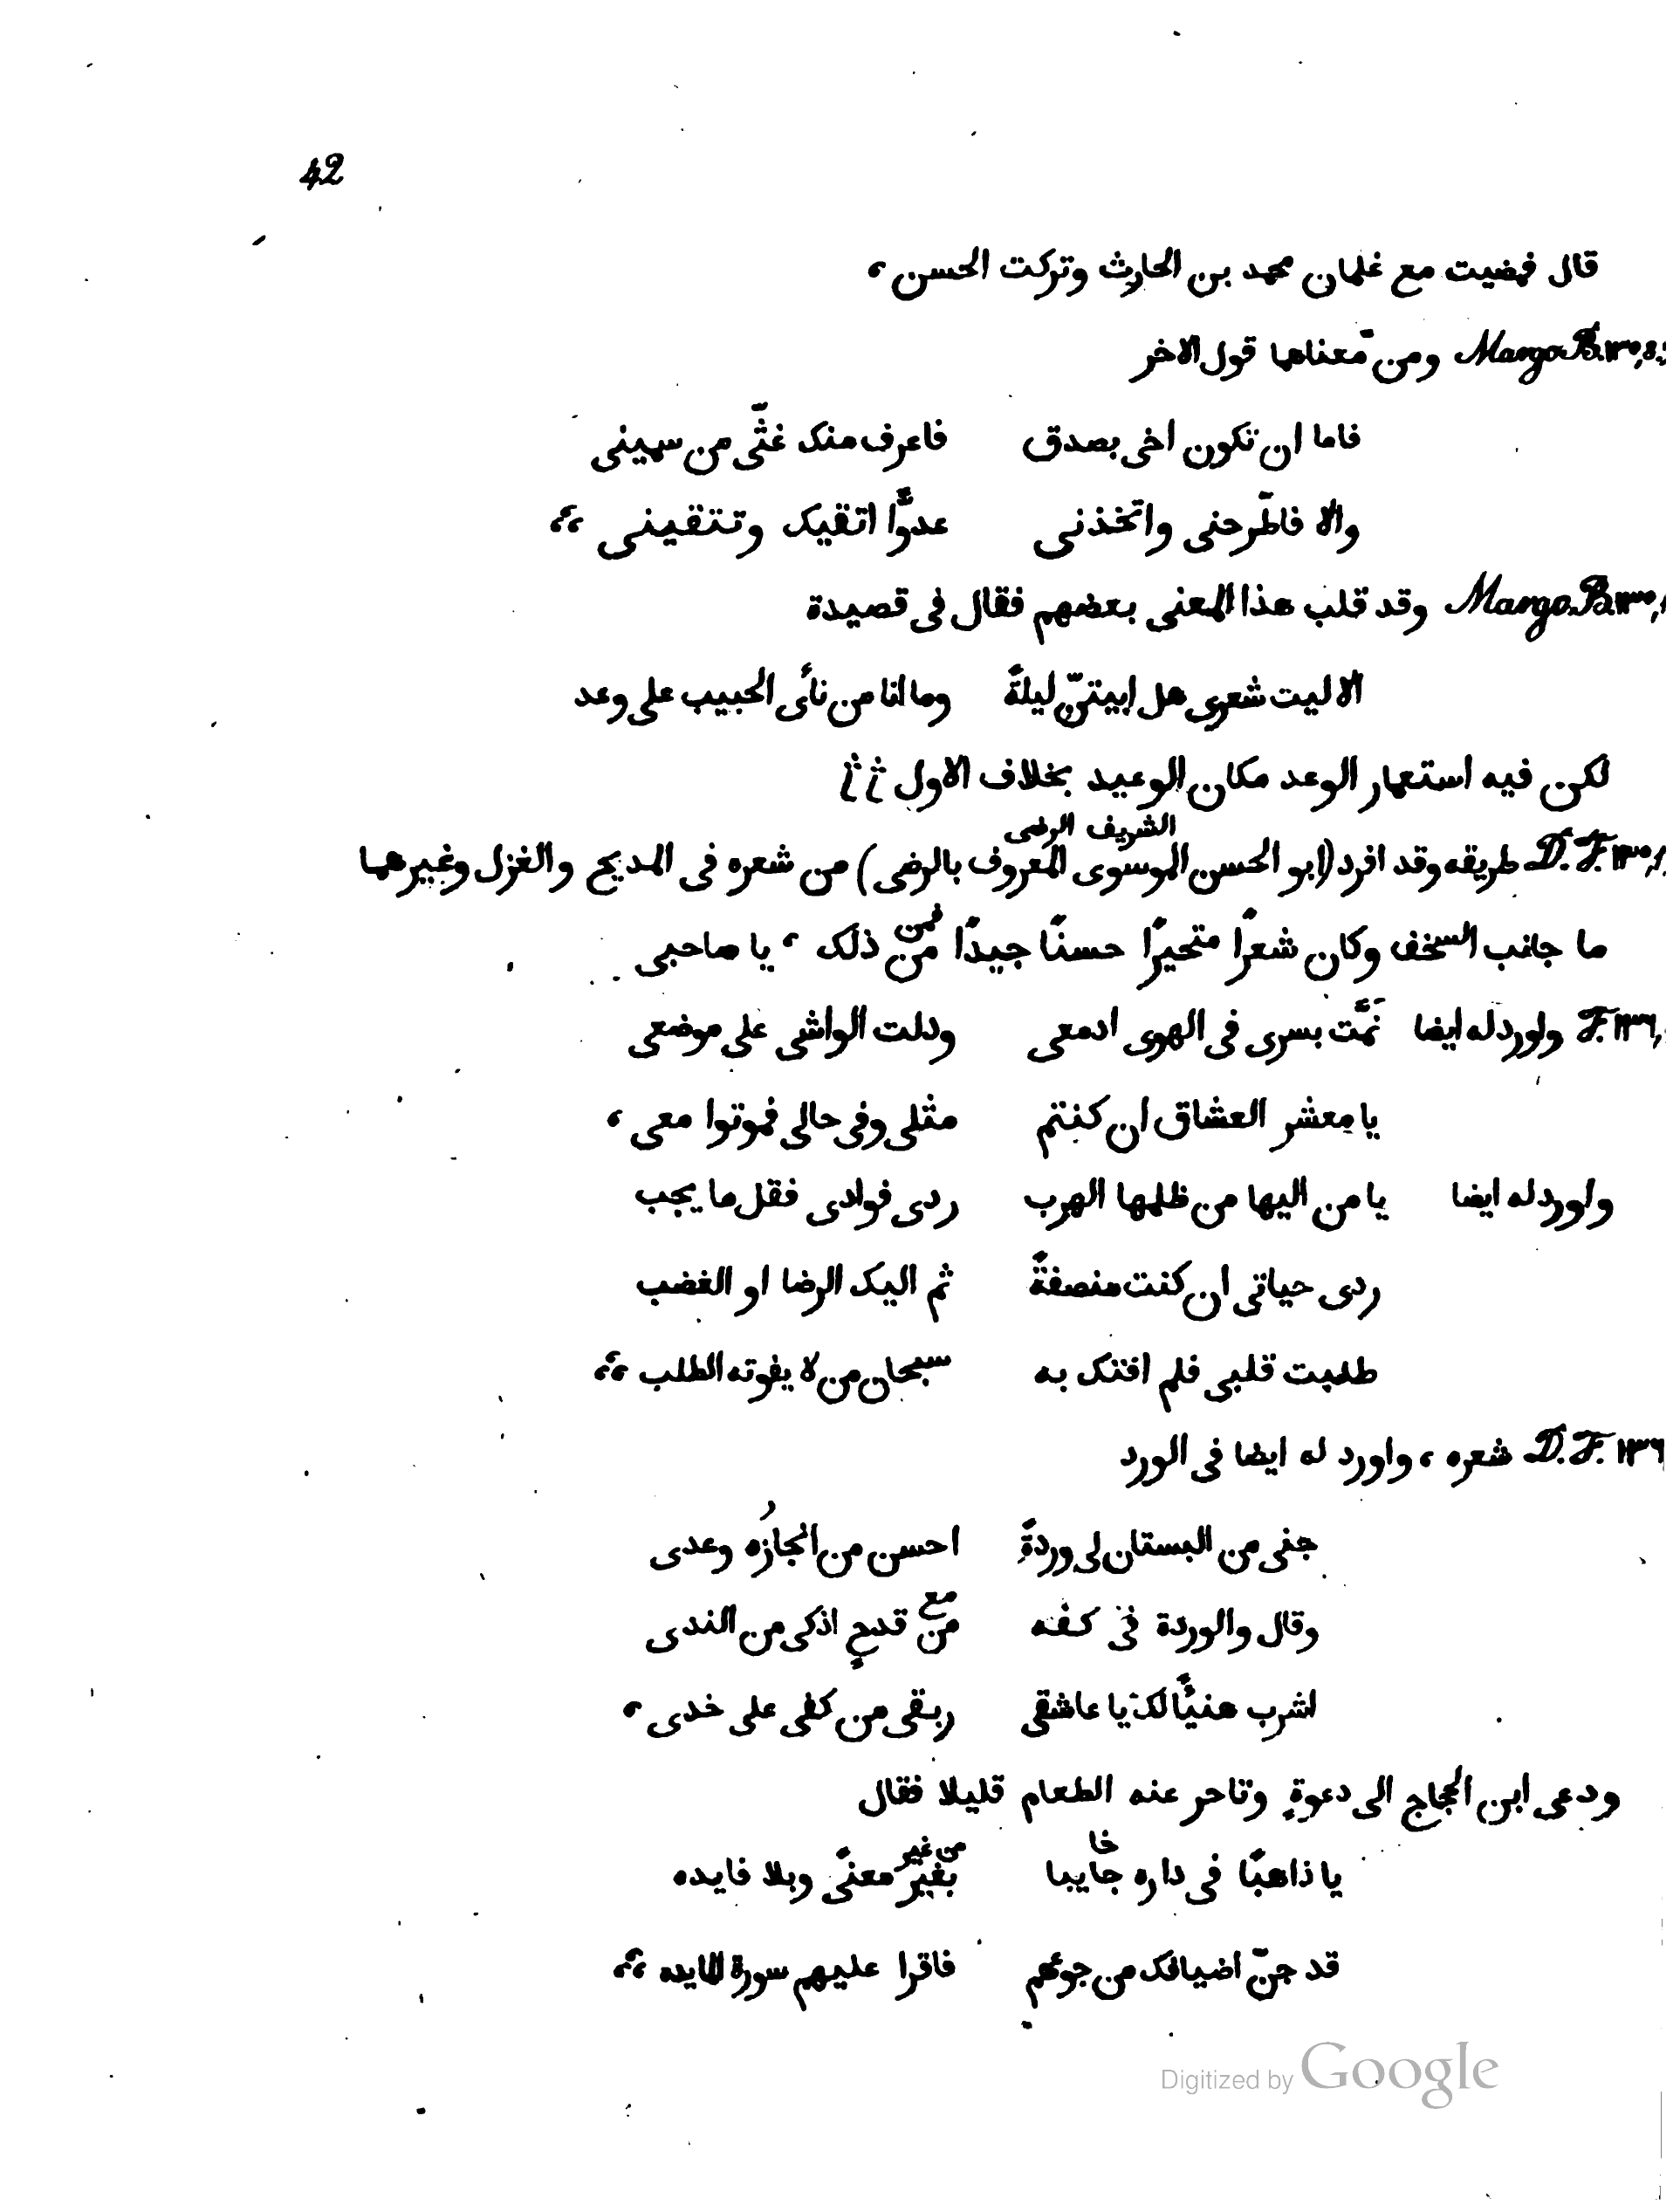 42
قال فمضيت مع غلمان محمد بن الحارث وتركت الحسن ،
Margo. B. ١٣٥, 8. ومن معناها قول الاخر
فاما ان تكون اخى بصدق فاعرف منك غثّى من سمينى
والا فاطّرحنى واتخذنى عدوًّا اتقيك وتتقينى ،،
Margo. B. ١٣٥, وقد قلب هذا المعنى بعضهم فقال فى قصيدة
الا ليت شعرى هل ابيتنّ ليلةً وما انا من نأى الحبيب على وعد
لكن فيه استعمار الوعد مكان الوعيد بخلاف الاول
الشريف الرضى
D. F. ١٣٥, طريقه وقد افرد (ابو الحسن الموسوى المعروف بالرضى) من شعره فى المديح والغزل وغيرهما
فمن
ما جانب السخف وكان شعرًا متحيرًا حسنًا جيدًا من ذلك ، يا صاحبى
F. ١٣٦, واورد له ايضا نمّت بسرى فى الهوى ادمعى ودلت الواشى على موضعى
يا معشر العشاق ان كنتم مثلى وفى حالى فموتوا معى ،
واورد له ايضا يا من اليها من ظلمها الهرب ردى فوادى فقل ما يجب
ردى حياتى ان كنت منصفةً ثم اليك الرضا او الغضب
طلبت قلبى فلم افتك به سبحان من لا يفوته الطلب ،،
D. F. ١٣٦ شعره ، واورد له ايضا فى الورد
جنى من البستان لى وردةً احسن من انجازُه وعدى
مع
وقال والوردة فى كفه من قدحٍ اذكى من الندى
اشرب هنيئًا لك يا عاشقى ريقى من كفى على خدى ،
ودعى ابن الحجاج الى دعوةٍ وتاحر عنه الطعام قليلا فقال
خا من غير
يا ذاهبًا فى داره جايبا بغير معنًى وبلا فايده
قد جنّ اضيافك من جوعهم فاقرا عليهم سورة المايده ،،
Digitized by Google